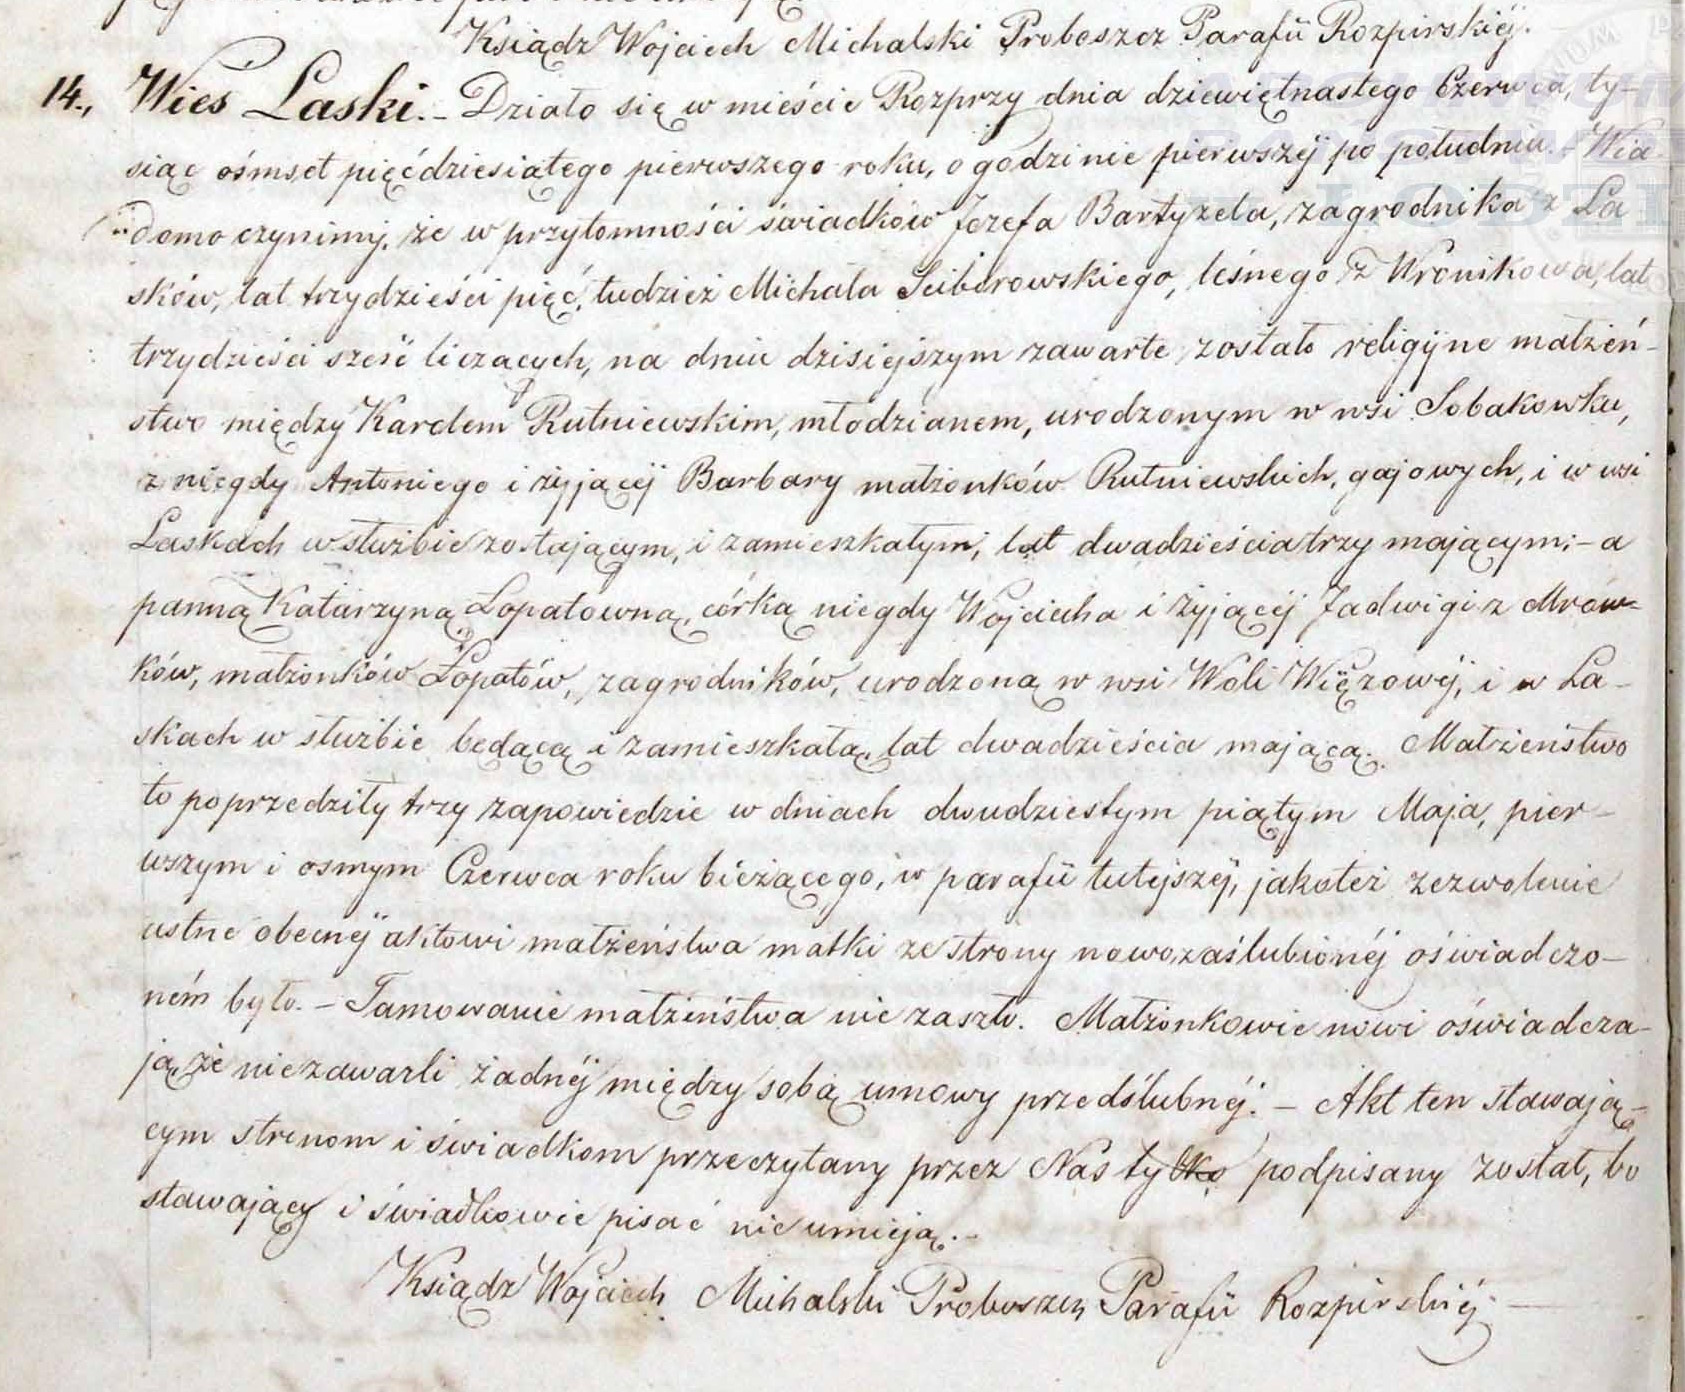 Ksiądz Wojciech Michalski Proboszcz Parafii Rozpirskiéj.
14., Wieś Laski. – Działo się w mieście Rozprzy dnia dziewiętnastego Czerwca, ty-
siąc ośmset pięćdziesiątego pierwszego roku, o godzinie pierwszéj po południu. – Wia-
domo czynimy, że w przytomności świadków Józefa Bartyzela, zagrodnika z La
sków, lat trzydzieści pięć, tudzież Michała Sciborowskiego, leśnego z Wronikowa, lat
trzydzieści sześć liczących, na dniu dzisiejszym zawarte zostało religijne małżeń-
stwo między Karolem Rutniewskim, młodzianem, urodzonym w wsi Sobakowku,
z niegdy Antoniego i żyjącéj Barbary małżonków Rutniewskich, gajowych, i w wsi
Laskach w służbie zostającym, i zamieszkałym, lat dwadzieścia trzy mającym; – a
panną Katarzyną Łopatowną, córką niegdy Wojciecha i żyjącéj Jadwigi z Mrów-
ków, małżonków Łopatów, zagrodników, urodzoną w wsi Woli Więzowéj, i w La-
skach w służbie będącą i zamieszkałą, lat dwadzieścia mającą. Małżeństwo
to poprzedziły trzy zapowiedzie w dniach dwudziestym piątym Maja, pier-
wszym i osmym Czerwca roku bieżącego, w parafii tutejszéj, jakoteż zezwolenie
ustne obecnéj aktowi małżeństwa matki ze strony nowozaślubionéj oświadczo-
ném było. – Tamowanie małżeństwa nie zaszło. Małżonkowie nowi oświadcza-
ją, że niezawarli żadnéj między sobą umowy przedślubnéj. – Akt ten stawają-
cym stronom i świadkom przeczytany przez Nas tylko podpisany został, bo
stawający i świadkowie pisać nie umieją. –
Ksiądz Wojciech Michalski Proboszcz Parafii Rozpirskiéj. –